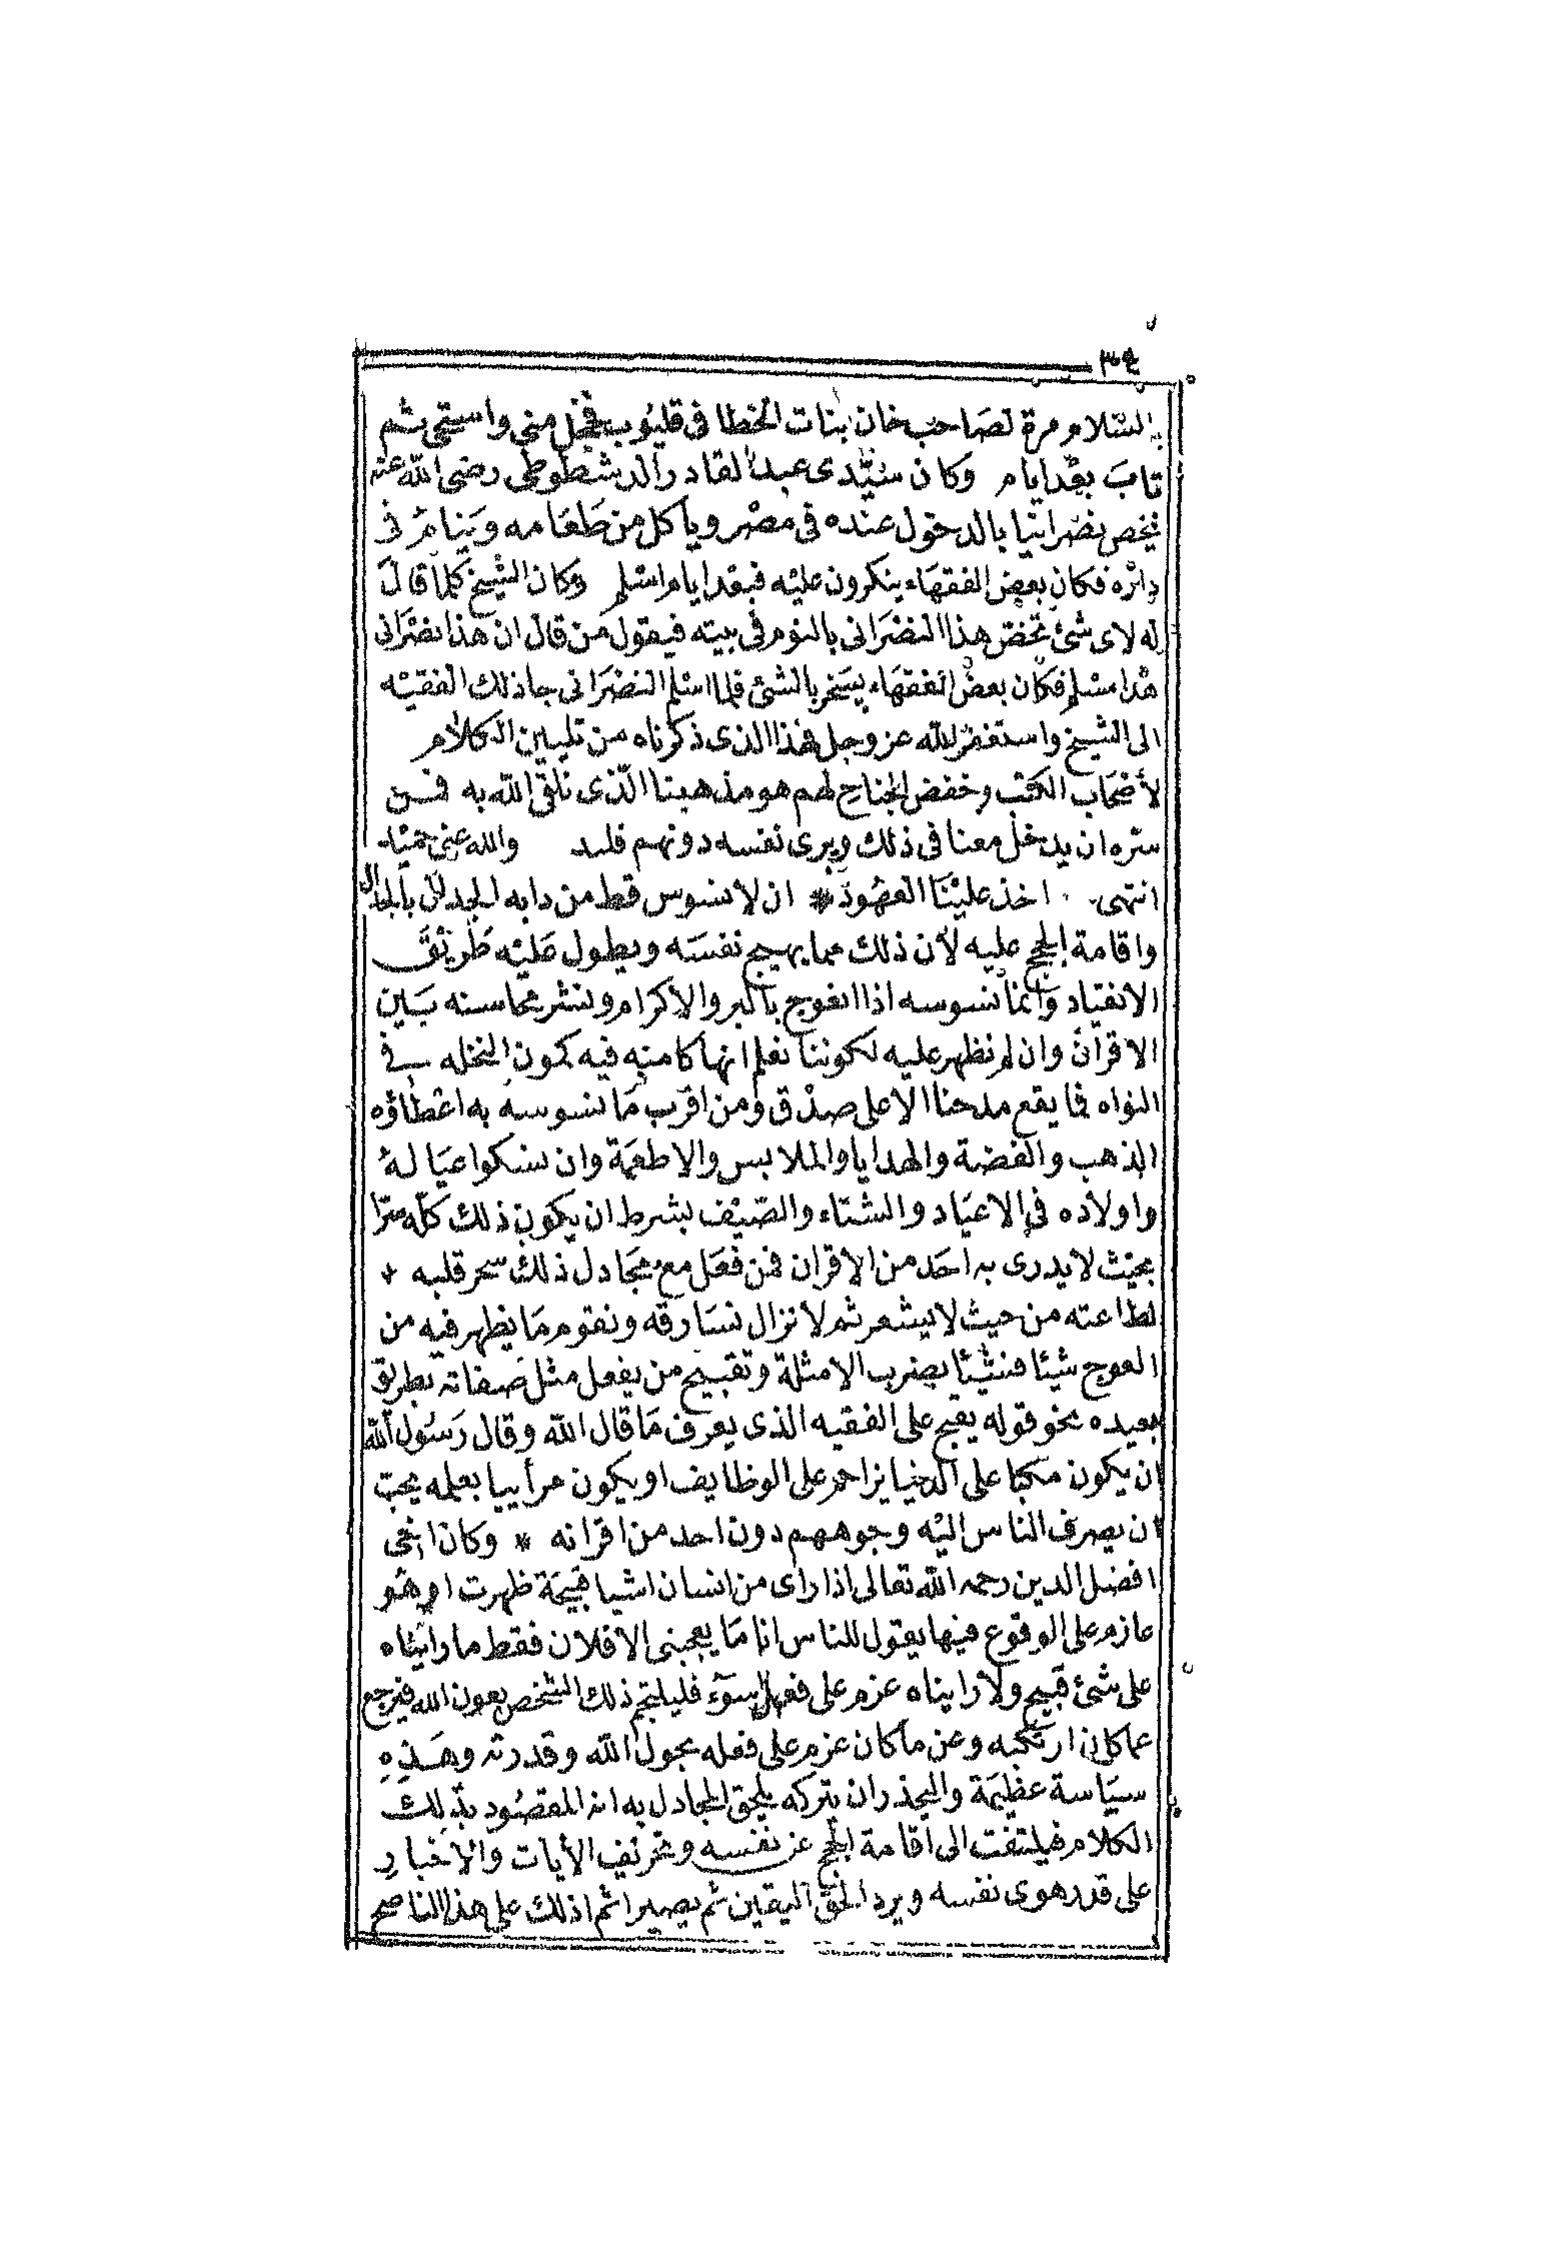 ٣٤
بالسّلام مرة لصاحب خان بنات الخطا فى قليوب فخجل منى واستحى ثم
تاب بعد ايام وكان سيّدى عبد القادر الدشطوطى رضى الله عنه
يخص نصرانيا بالدخول عنده فى مصر وياكل من طعامه وينام فى
داره فكان بعض الفقهاء ينكرون عليه فبعد ايام اسلم وكان الشيخ كلما قال
له لاى شئ تخص هذا النصرانى بالنوم فى بيته فيقول من قال ان هذا نصرانى
هذا مسلم فكان بعض الفقهاء يسخر بالشئ فلما اسلم النصرانى جا ذلك الفقيه
الى الشيخ واستغفر لله عز وجل فهذا الذى ذكرناه من تليين الكلام
لأصحاب الكتب وخفض الجناح لهم هو مذهبنا الّذى نلقى الله به فمن
سره ان يدخل معنا فى ذلك ويرى نفسه دونهم فليد والله غنى حميد
انتهى اخذ علينا العهود * ان لا نسوس قط من دابه الجدال بالجدال
واقامة الحجج عليه لأن ذلك مما يهيج نفسه ويطول عليه طريق
الانقياد وانما نسوسه اذا انعوج بالبر والاكرام وننشر محاسنه بين
الاقران وان لم نظهر عليه لكوننا نعلم انها كامنه فيه كمون النخله فى
النواه فما يقع مدحنا الا على صدق ومن اقرب ما نسوسه به اعطاؤه
الذهب والفضة والهدايا والملابس والاطعمة وان نكسوا عياله
واولاده فى الاعياد والشتاء والصيف بشرط ان يكون ذلك كله سرّا
بحيث لا يدرى به احد من الاقران فمن فعل مع مجادل ذلك سحر قلبه
لطاعته من حيث لا يشعر ثم لا نزال نسارقه ونقوم ما يظهر فيه من
العوج شيئا فشيئا بضرب الامثلة وتقبيح من يفعل مثل صفاته بطريق
بعيده نحو قوله يقبح على الفقيه الذى يعرف ما قال الله وقال رسول الله
ان يكون مكبا على الدنيا يزاحم على الوظايف او يكون مرأييا بعلمه يحب
ان يصرف الناس اليه وجوههم دون احد من اقرانه * وكان اخى
افضل الدين رحمه الله تعالى اذا راى من انسان اشيا قبيحة ظهرت او هو
عازم على الوقوع فيها يقول للناس انا ما يعجبنى الا فلان فقط ما رايناه
على شئ قبيح ولا راىناه عزم على فعل سوء فليلتجم ذلك الشخص بعون الله فيرجع
عما كان ارتكبه وعن ما كان عزم على فعله بحول الله وقدرته وهذه
سياسة عظيمة واليحذر ان يتركه يلحق المجادل به انه المقصود بذلك
الكلام فيلتفت الى اقامة الحجج عن نفسه وتحريف الأيات والاخبار
على قدر هوى نفسه ويرد الحق اليقين ثم يصير اثم ذلك على هذا الناصح